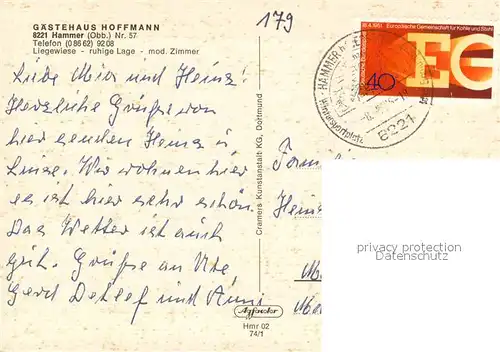 GÄSTEHAUS HOFFMANN
8221 Hammer (Obb.) Nr. 57
Telefon (0 86 62) 92 08
Liegewiese - ruhige Lage - mod. Zimmer
179
Liebe Mia und Heinz!
Herzliche Grüße von
hier senden Heinz u
Luise. Wo wohnen hier
es ist hier sehr schön.
Das Wetter ist auch
gut. Grüße an Ute
Gerd Detlef und
Cramers Kunstanstalt KG, Dortmund
18.4.1951 Europäische Gemeinschaft für Kohle und Stahl
EG
40
HAMMER
8221
Fam
Hein
privacy protection
Datenschutz
Hmr 02
74/1